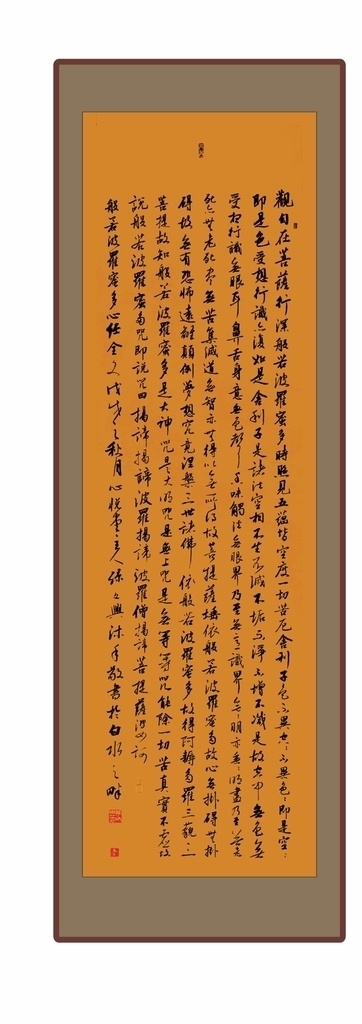 觀自在菩薩行深般若波羅蜜多時照見五蘊皆空度一切苦厄舍利子色不異空：不異色：即是空：
即是色受想行識亦復如是舍利子是諸法空相不生不滅不垢不淨不增不減是故空中無色無
受想行識無眼耳鼻舌身意無色聲香味觸法無眼界乃至無意識界無無明亦無無明盡乃至無老
死亦無老死盡無苦集滅道無智亦無得以無所得故菩提薩埵依般若波羅蜜多故心無掛礙無掛
礙故無有恐怖遠離顛倒夢想究竟涅槃三世諸佛依般若波羅蜜多故得阿耨多羅三藐三
菩提故知般若波羅蜜多是大神咒是大明咒是無上咒是無等等咒能除一切苦真實不虛故
說般若波羅蜜多咒即說咒曰揭諦揭諦波羅揭諦波羅僧揭諦菩提薩婆訶
般若波羅蜜多心經全文戊戌之秋月心悅堂主人興沐手敬書於白水之畔